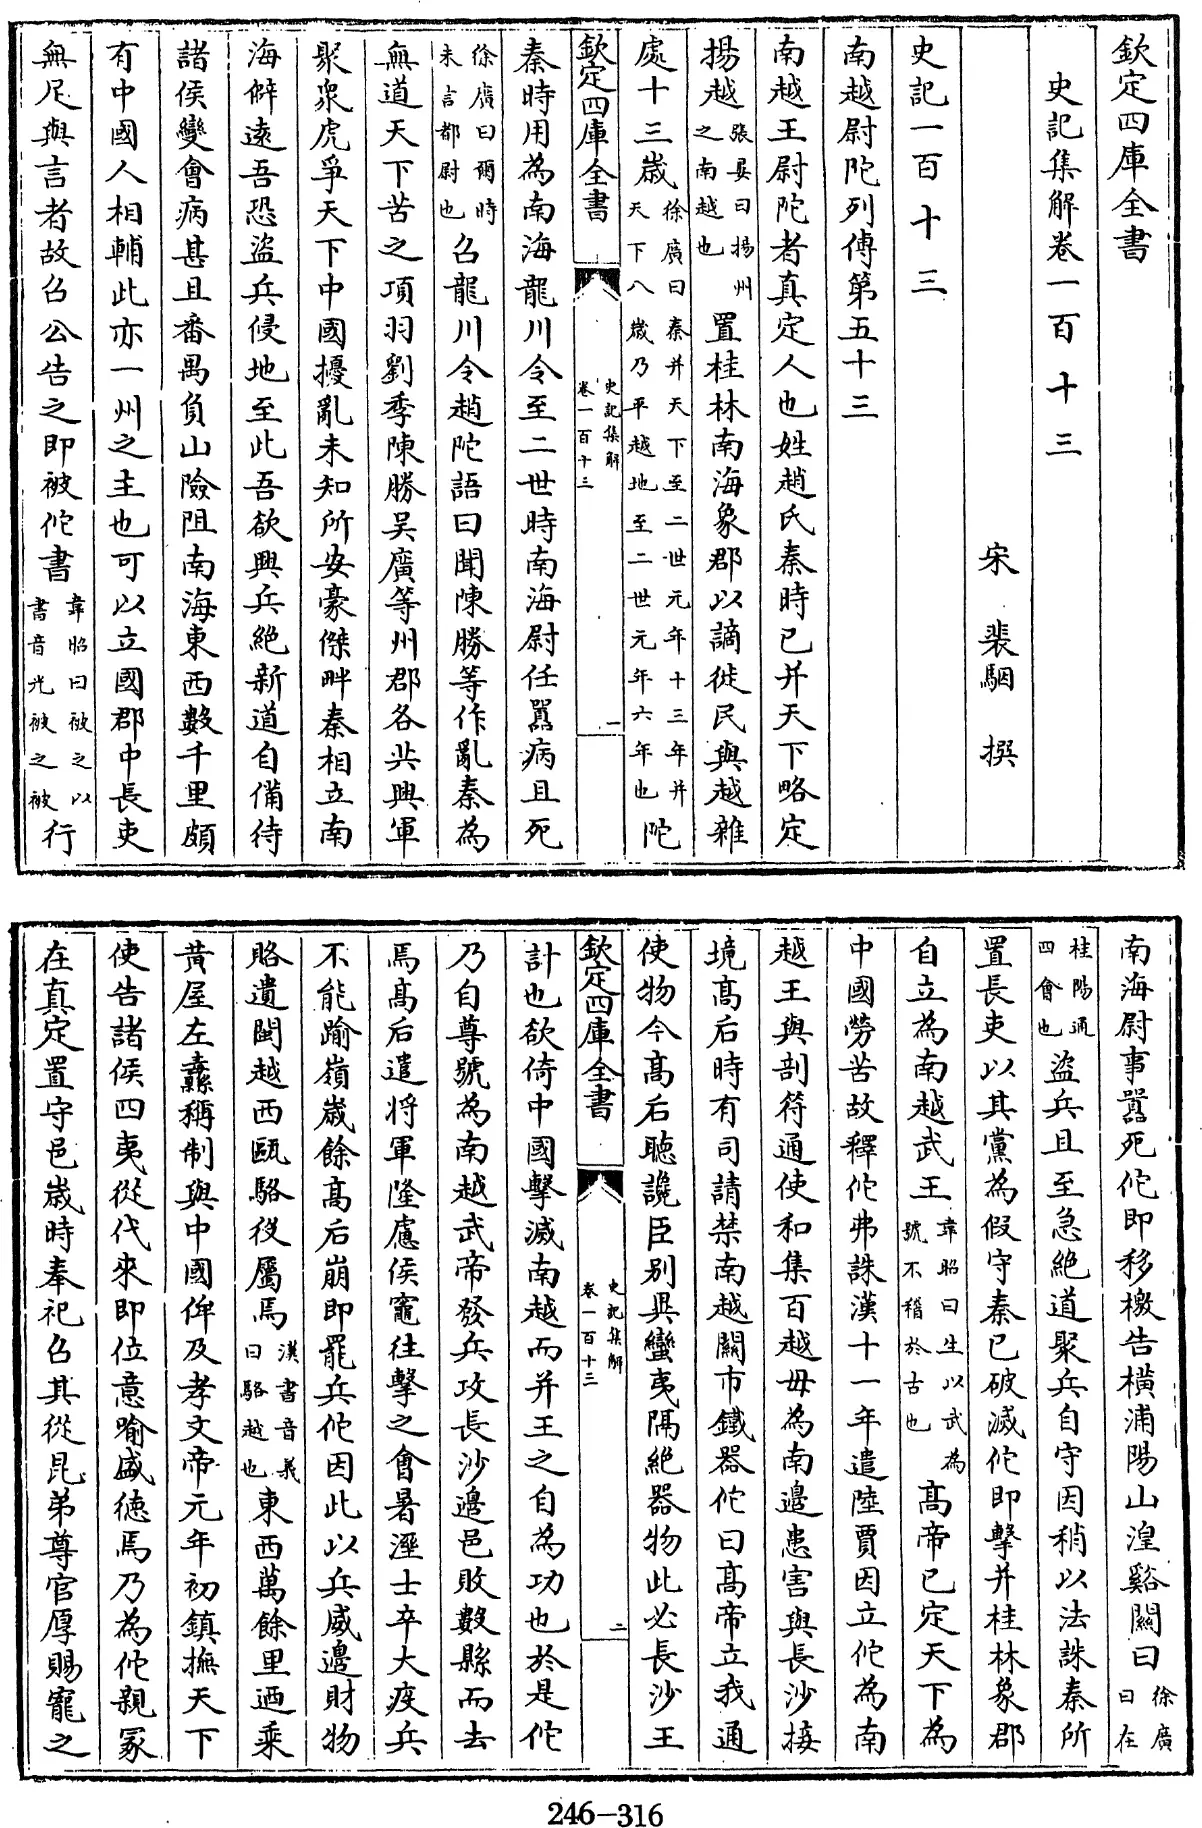 欽定四庫全書
史記集解卷一百十三
宋 裴駰 撰
史記一百十三
南越尉陀列傳第五十三
南越王尉陀者真定人也姓趙氏秦時已并天下略定
揚越張晏曰揚州之南越也置桂林南海象郡以謫徙民與越雜
處十三嵗徐廣曰秦并天下至二世元年十三年并天下八嵗乃平越地至二世元年六年也陀
欽定四庫全書 史記集解 卷一百十三 一
秦時用為南海龍川令至二世時南海尉任囂病且死
徐廣曰爾時未言都尉也召龍川令趙陀語曰聞陳勝等作亂秦為
無道天下苦之項羽劉季陳勝吴廣等州郡各共興軍
聚衆虎爭天下中國擾亂未知所安豪傑畔秦相立南
海僻逺吾恐盜兵侵地至此吾欲興兵絶新道自備待
諸侯變會病甚且番禺負山險阻南海東西數千里頗
有中國人相輔此亦一州之主也可以立國郡中長吏
無足與言者故召公告之即被佗書韋昭曰被之以書音光被之被行
南海尉事囂死佗即移檄告橫浦陽山湟谿闗曰徐廣曰在
桂陽通四會也盜兵且至急絶道聚兵自守因稍以法誅秦所
置長吏以其黨為假守秦已破滅佗即擊并桂林象郡
自立為南越武王韋昭曰生以武為號不稽於古也髙帝已定天下為
中國勞苦故釋佗弗誅漢十一年遣陸賈因立佗為南
越王與剖符通使和集百越毋為南邊患害與長沙接
境髙后時有司請禁南越闗市鐵器佗曰髙帝立我通
使物今髙后聽讒臣别異蠻夷隔絶器物此必長沙王
欽定四庫全書 史記集解 卷一百十三 二
計也欲倚中國擊滅南越而并王之自為功也於是佗
乃自尊號為南越武帝發兵攻長沙邊邑敗數縣而去
焉髙后遣將軍隆慮侯竈往擊之會暑溼士卒大疫兵
不能踰嶺嵗餘髙后崩即罷兵佗因此以兵威邊財物
賂遺閩越西甌駱役屬焉漢書音義曰駱越也東西萬餘里迺乘
黄屋左纛稱制與中國侔及孝文帝元年初鎮撫天下
使告諸侯四夷從代來即位意喻盛徳焉乃為佗親冡
在真定置守邑嵗時奉祀召其從昆弟尊官厚賜寵之
246-316